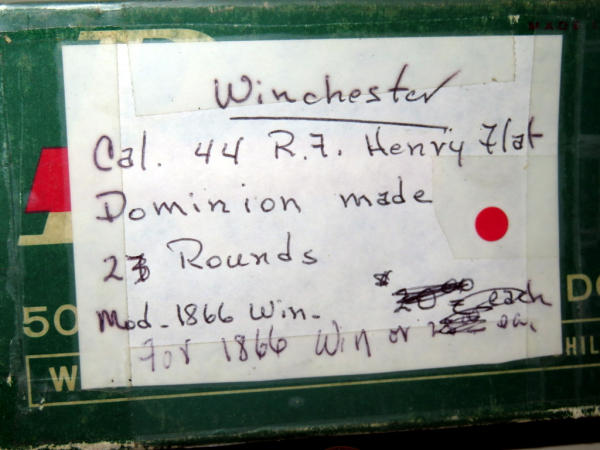 Winchester
Cal. 44 R.F. Henry Flat
Dominion made
23 Rounds
$ 20.00 each
Mod. 1866 Win.
For 1866 Win or ea.
50
DO
W
HIL